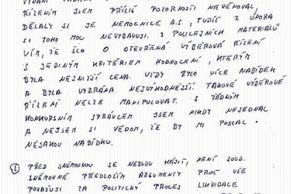 ŘÍZENÍ JSEM PŘÍLIŠ POZORNOSTI NEVĚNOVAL,
DĚLALY SI JE NEMOCNICE A.S., TUDÍŽ Z ÚNORA
SI TOHO MOC NEVYBAVUJI. Z POLICEJNÍCH MATERIÁLŮ
VÍM, ŽE ŠLO O OTEVŘENÁ VÝBĚROVÁ ŘÍZENÍ
S JEDINÝM KRITÉRIEM HODNOCENÍ, KTERÝM
BYLA NEJNIŽŠÍ CENA. VŽDY BYLO VÍCE NABÍDEK
A BYLA VYBRÁNA NEJVÝHODNĚJŠÍ. TAKOVÉ VÝBĚROVÉ
ŘÍZENÍ NELZE MANIPULOVAT. S ŽÁDNÝM
SPRÁVCEM JSEM NIKDY NEJEDNAL
A NEJSEM SI VĚDOM, ŽE BY MI POSLAL
NĚJAKOU NABÍDKU.
PŘED SNĚMOVNOU SE NEBUDU HÁJIT, NENÍ SOUD.
SNĚMOVNĚ PŘEDLOŽÍM ARGUMENTY PROČ VŠE
POVAŽUJI ZA POLITICKÝ PROCES LIKVIDACE